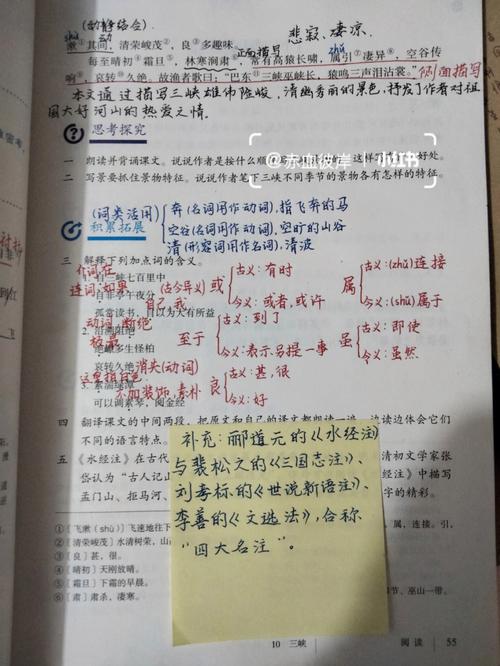 (动静结合)
悲寂、凄凉
漱①其间,清荣峻茂②,良③多趣味。
正面描写
每至晴初④霜旦⑤,林寒涧肃⑥,常有高猿长啸,属引⑦凄异⑧,空谷传
响⑨,哀转⑩久绝。故渔者歌曰:“巴东三峡巫峡长,猿鸣三声泪沾裳。”
侧面描写
本文通过描写三峡雄伟险峻,清幽秀丽的景色,抒发了作者对祖
国大好河山的热爱之情。
思考探究
一 朗读并背诵课文。说说作者是按什么顺
这样写
好处。
二 写景要抓住景物特征。说说作者笔下三峡不同季节的景物各有怎样的特征。
@赤血彼岸
小红书
积累拓展
(词类活用)
奔(名词用作动词),指飞奔的马
空谷(名词用作动词),空旷的山谷
清(形容词用作名词),清波
三 解释下列加点词的含义。
介词,在
1. 自三峡七百里中
连词,如果
自非亭午夜分
自己,我
孤常读书,自以为大有所益
动词,断绝
2. 沿溯阻绝
极,最
绝巘多生怪柏
哀转久绝
消失(动词)
这里指白色
3. 素湍绿潭
不加装饰,素朴
可以调素琴,阅金经
(古今异义)
或
古义:有时
今义:或者,或许
属
古义:(zhǔ)连接
今义:(shǔ)属于
至于
古义:到了
今义:表示另提一事
虽
古义:即使
今义:虽然
良
古义:甚,很
今义:好
四 翻译课文的中间两段,把原文和自己的译文都朗读一遍
边读边体会它们
不同的语言特点。
五 《水经注》在古代
清初文学家张
岱认为“古人记山
经注》中描写
孟门山、拒马河、
字的精彩。
补充:郦道元的《水经注》
与裴松之的《三国志注》、
刘孝标的《世说新语注》、
李善的《文选法》,合称
“四大名注”。
①〔飞漱(shù)〕飞速地往下
属,连接。引,
②〔清荣峻茂〕水清树荣,山
③〔良〕甚,很。
④〔晴初〕天刚放晴。
⑤〔霜旦〕下霜的早晨。
节,巫山一带。
⑥〔肃〕肃杀,凄寒。
10 三峡
阅读
55